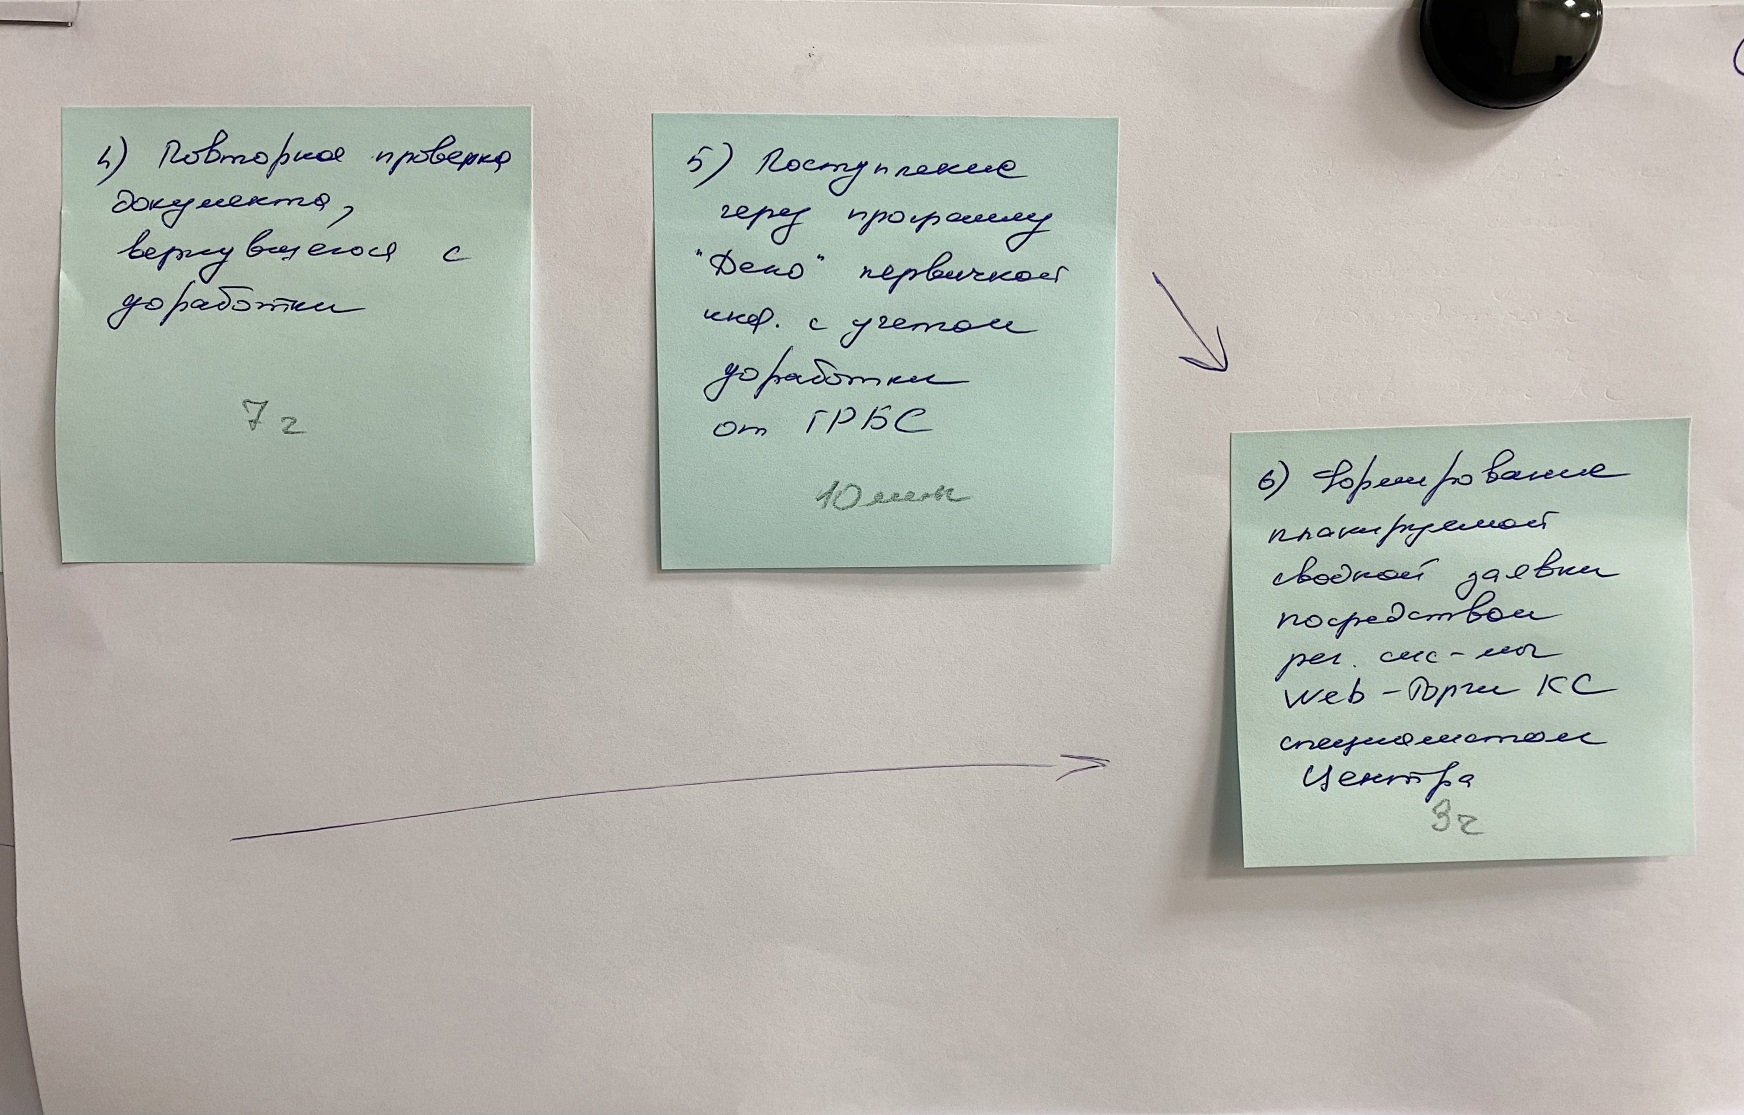 4) Повторная проверка
документа,
вернувшегося с
доработки
7 ч
5) Поступление
через программу
"Дело" первичной
инф. с учетом
доработки
от ГРБС
10 мин
6) Формирование
планируемой
сводной заявки
посредством
рег. сис-мы
Web-Торги КС
специалистом
Центра
3ч